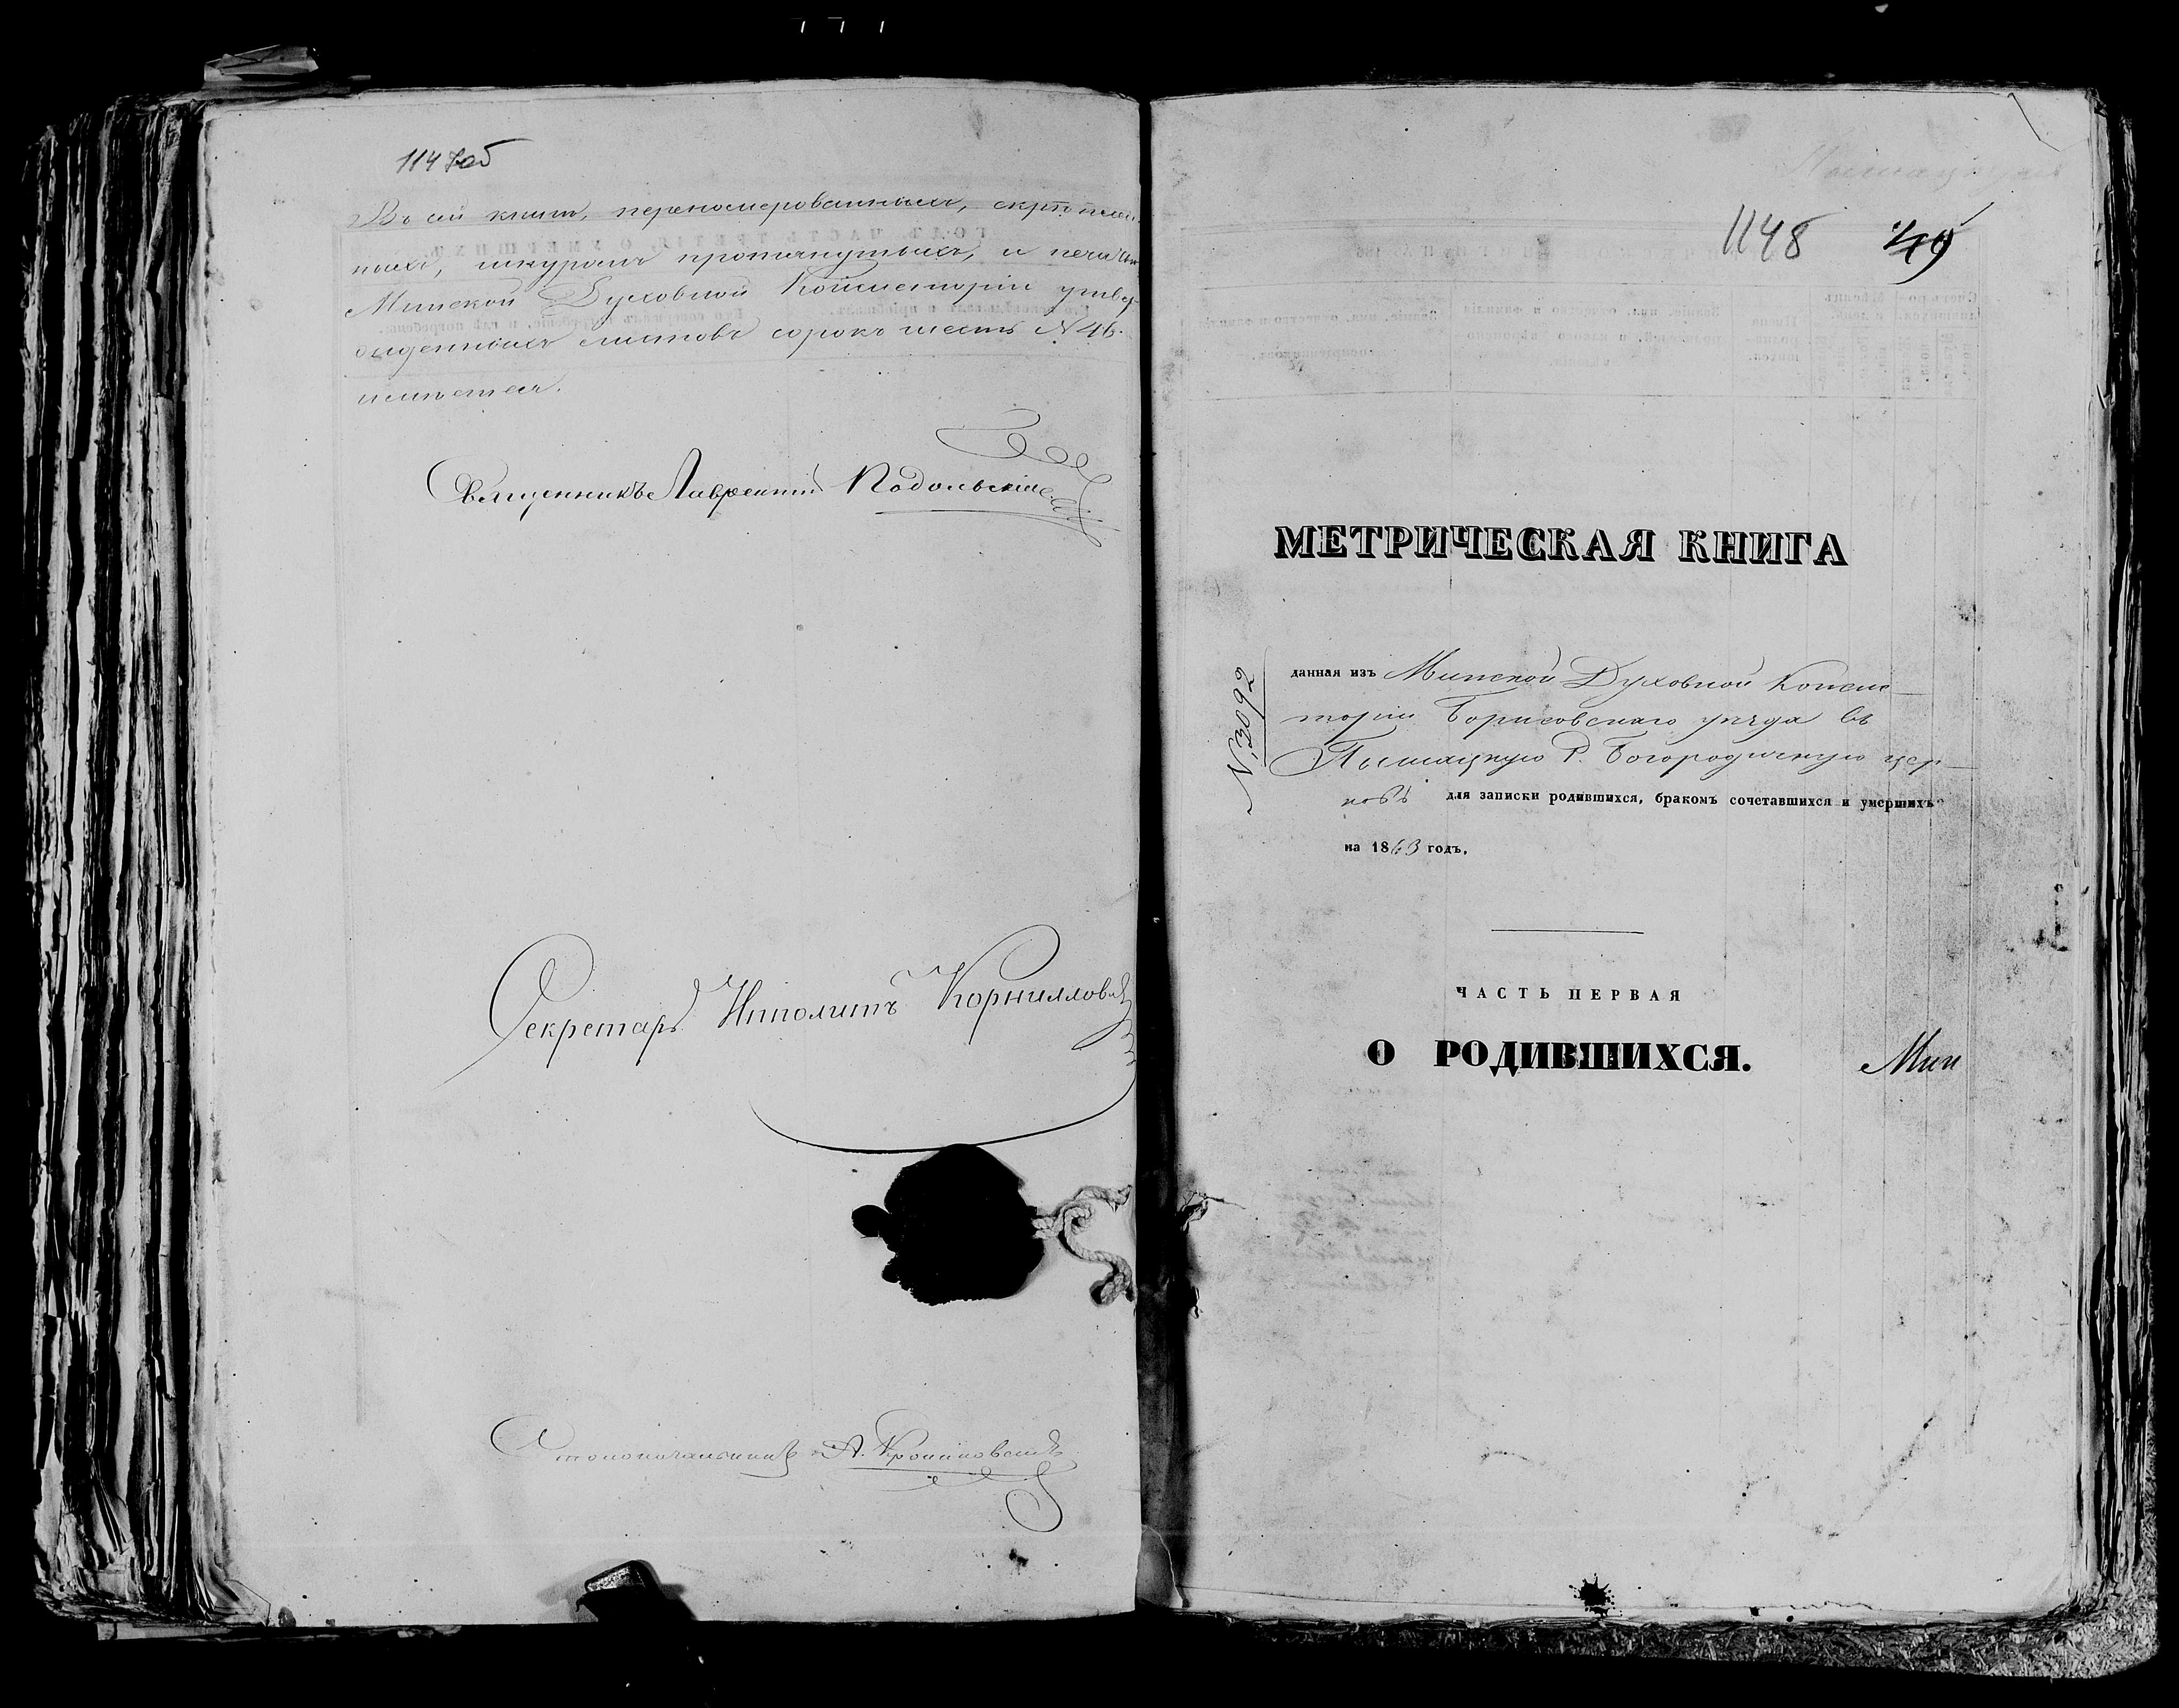 1147об
Въ сей книгѣ, перенумерованныхъ, скрѣплен-
ныхъ, шнуромъ протянутыхъ, и печатью
Минской Духовной Консисторіи утвер-
жденныхъ листовъ сорокъ шесть N 46.
имѣется.
Священникъ Лаврентій Подольскій
Секретарь Иполитъ Корниллов
Столоначальникъ А.
1148 49
МЕТРИЧЕСКАЯ КНИГА
N. 3092
данная изъ Минской Духовной Консис-
торіи Борисовскаго уѣзда въ
Пышацкую Р. Богородичную цер-
ковь для записки родившихся, бракомъ сочетавшихся и умершихъ
на 1863 годъ.
ЧАСТЬ ПЕРВАЯ
О РОДИВШИХСЯ.
Мин